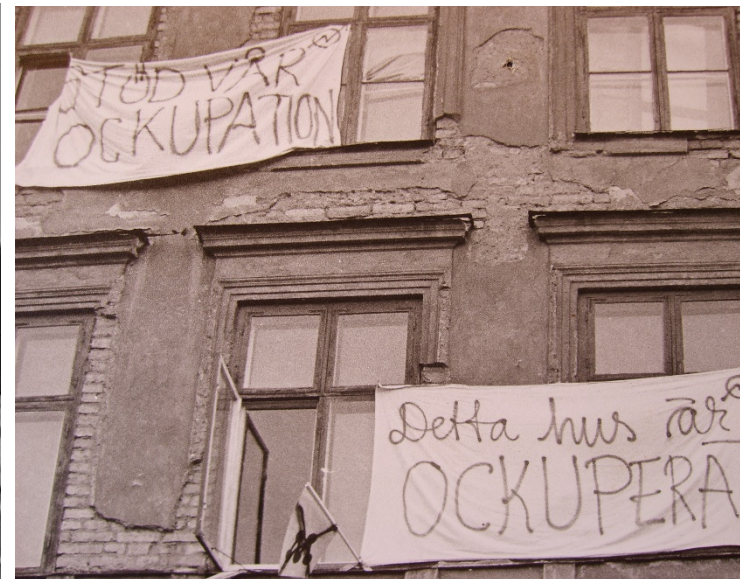 STÖD VÅR
OCKUPATION
Detta hus är
OCKUPERA